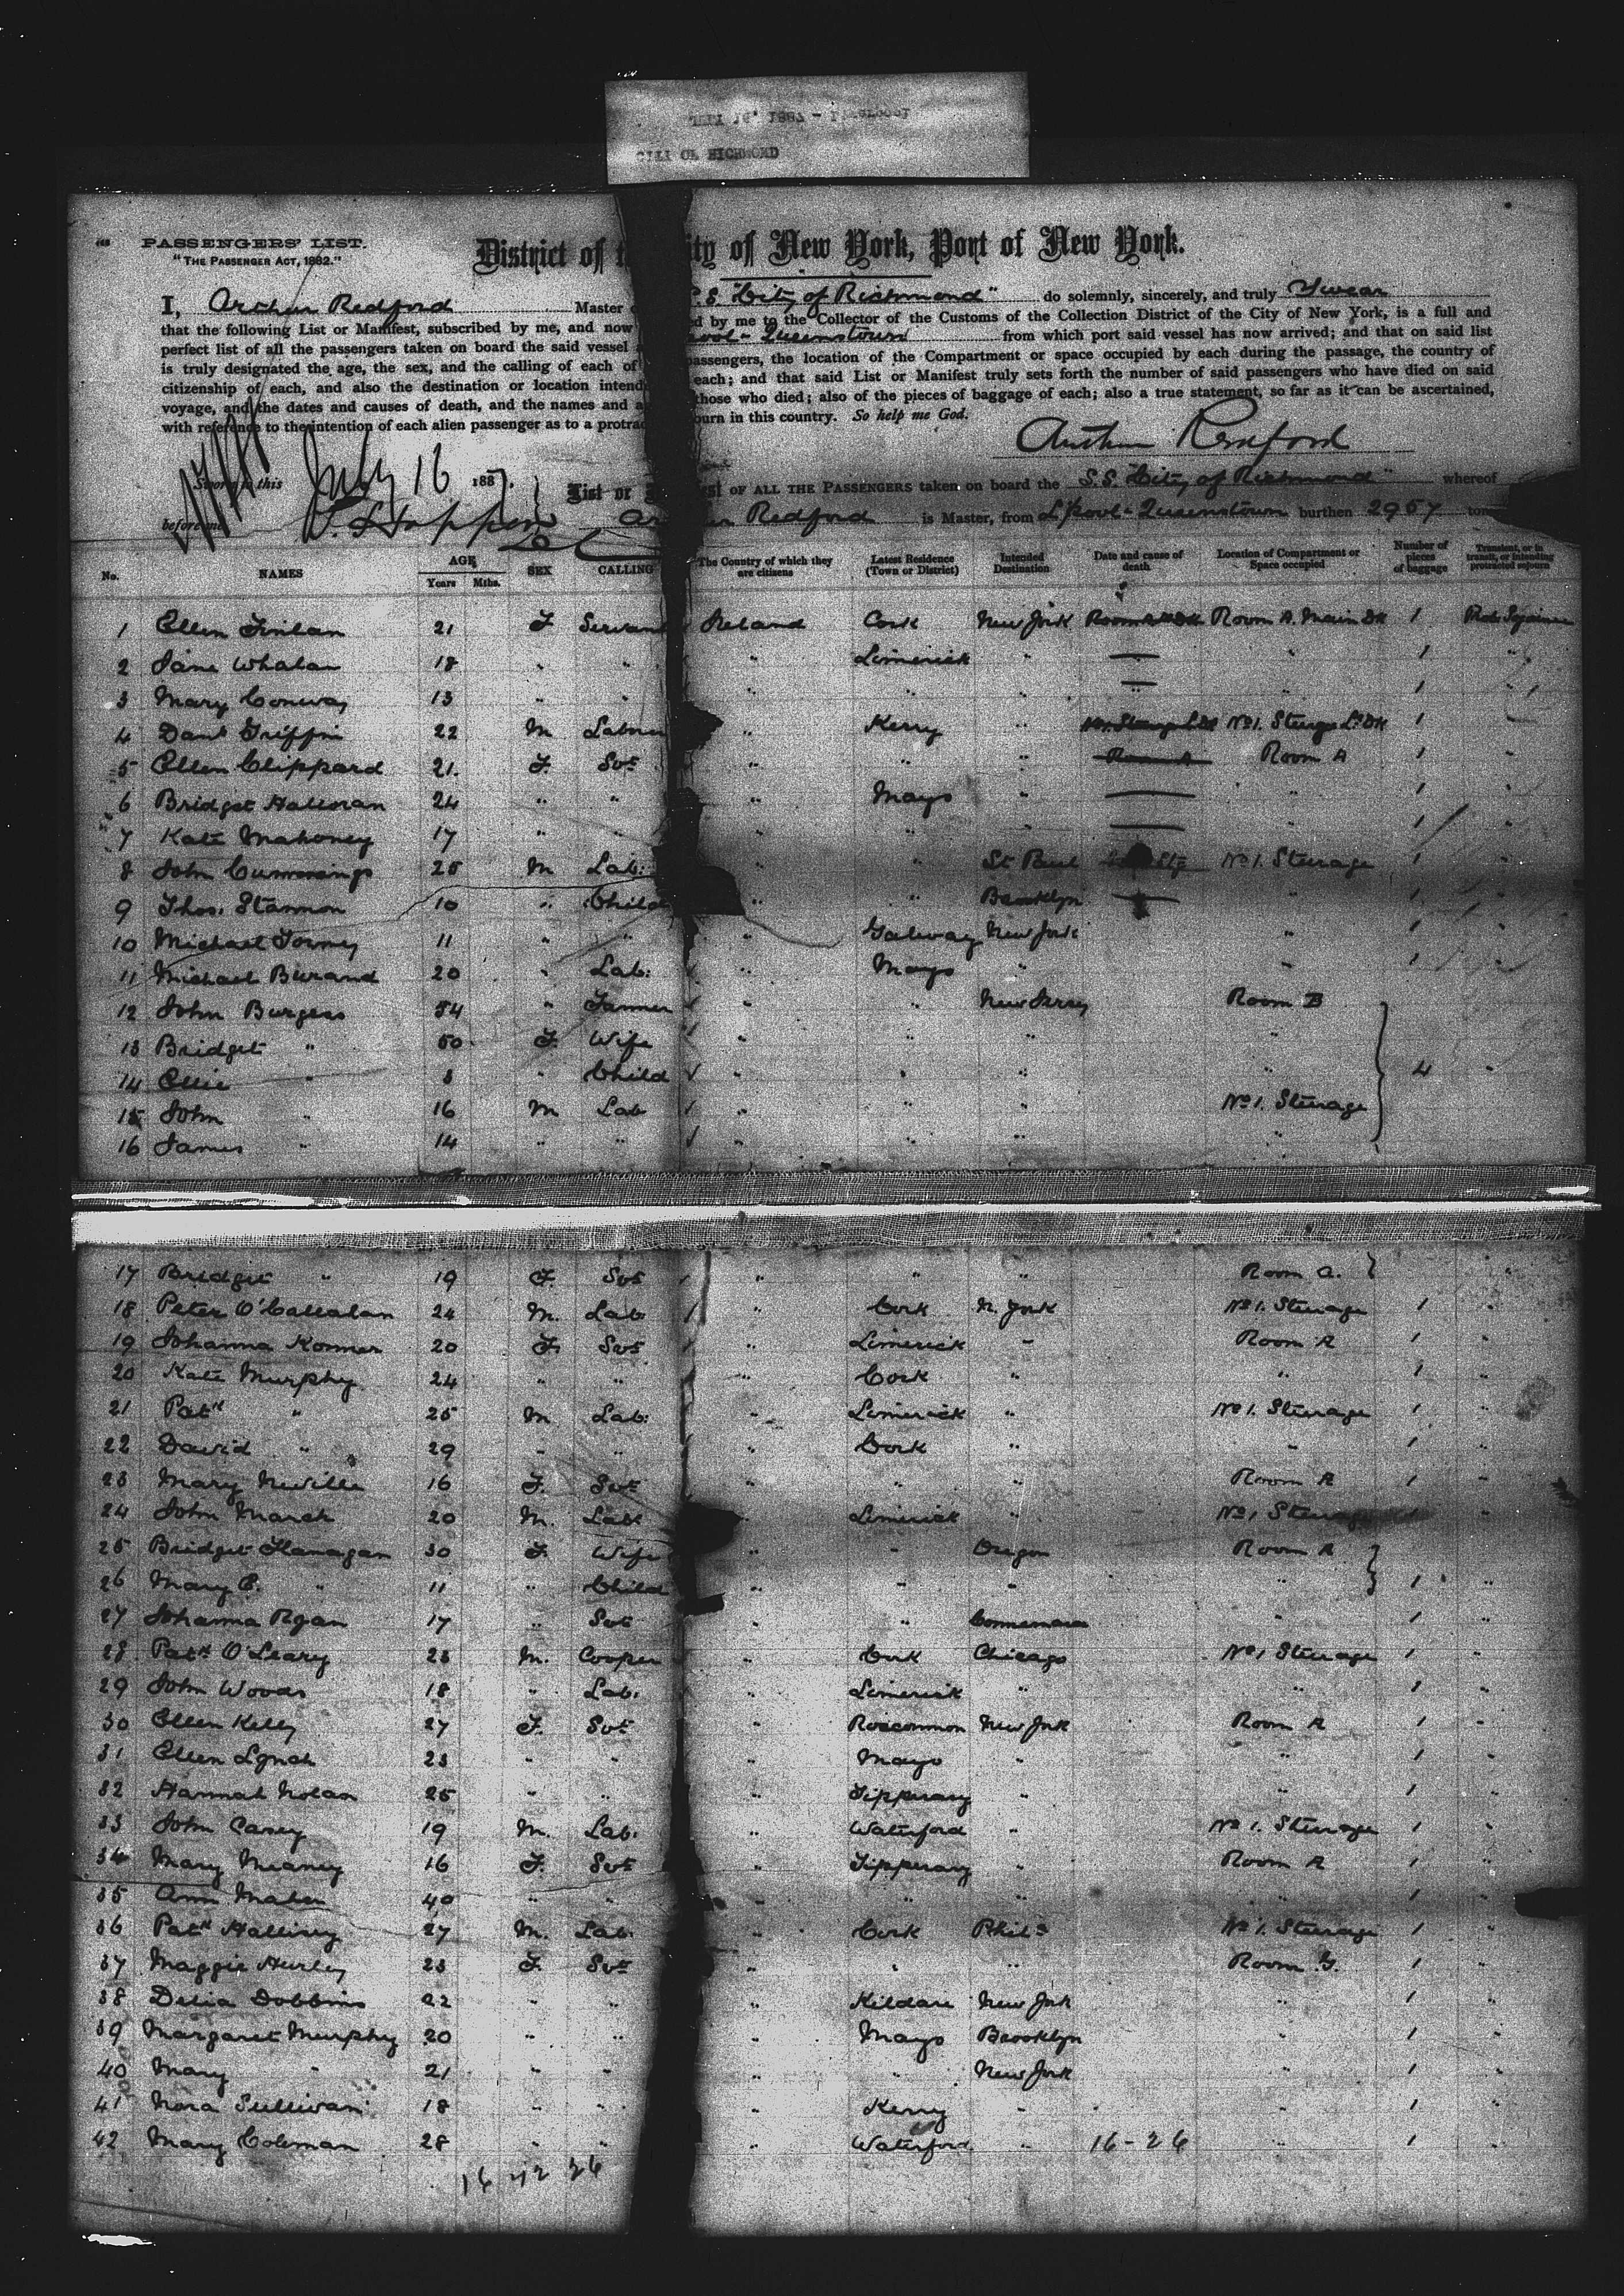 CITY OF RICHMOND
PASSENGERS' LIST.
"THE PASSENGER ACT, 1882."
District of t ity of New York, Port of New York.
I, Arthur Redford Master S.S. "City of Richmond" do solemnly, sincerely, and truly Swear
that the following List or Manifest, subscribed by me, and now d by me to the Collector of the Customs of the Collection District of the City of New York, is a full and
perfect list of all the passengers taken on board the said vessel pool - Queenstown from which port said vessel has now arrived; and that on said list
is truly designated the age, the sex, and the calling of each of passengers, the location of the Compartment or space occupied by each during the passage, the country of
citizenship of each, and also the destination or location intend each; and that said List or Manifest truly sets forth the number of said passengers who have died on said
voyage, and the dates and causes of death, and the names and a those who died; also of the pieces of baggage of each; also a true statement, so far as it can be ascertained,
with reference to the intention of each alien passenger as to a protrac ourn in this country. So help me God.
Arthur Redford
Sworn to this July 16 1887. List or OF ALL THE PASSENGERS taken on board the S.S. "City of Richmond" whereof
before me Ar r Redford is Master, from L'pool - Queenstown burthen 2957 tons
No. NAMES AGE Years Mths. SEX CALLING The Country of which they are citizens Latest Residence (Town or District) Intended Destination Date and cause of death Location of Compartment or Space occupied Number of pieces of baggage Transient, or in transit, or intending protracted sojourn
1 Ellen Finlan 21 F Servant Ireland Cork New York Room A. Main Dk 1
2 Jane Whalan 18 " " " Limerick " " 1 "
3 Mary Conway 13 " " " " " " 1 "
4 Danl Griffin 22 M Labourer Kerry " No 1. Steerage L. Dk 1 "
5 Ellen Clippard 21. F. Svt " " " Room A 1 "
6 Bridget Halloran 24 " " " Mayo " " 1 "
7 Kate Mahoney 17 " " " " " " 1 "
8 John Cummings 25 M Lab: " " St Paul No 1. Steerage 1 "
9 Thos. Stannon 10 " Child " " Brooklyn " 1 "
10 Michael Torney 11 " " " Galway New York " 1 "
11 Michael Burand 20 " Lab: " Mayo " " 1 "
12 John Burgess 54 " Farmer " " New Jersey Room B
13 Bridget " 50 F. Wife " " " "
14 Ellie " 8 " Child " " " " 4 "
15 John " 16 M Lab " " " No 1. Steerage
16 James " 14 " " " " " "
17 Bridget " 19 F. Svt " " " Room A. "
18 Peter O'Callalan 24 M. Lab " Cork N. York No 1. Steerage 1 "
19 Johanna Konner 20 F. Svt " Limerick " Room A 1 "
20 Kate Murphy 24 " " " Cork " " 1 "
21 Patk " 25 M Lab: " Limerick " No 1. Steerage 1 "
22 David " 29 " " " Cork " " 1 "
23 Mary Neville 16 F. Svt " " " Room A 1 "
24 John March 20 M. Lab: Limerick " No 1 Steerage 1 "
25 Bridget Flanagan 30 F. Wife " " Oregon Room A
26 Mary E. " 11 " Child " " " " 1 "
27 Johanna Ryan 17 " Svt " " Connemara " 1 "
28 Patk O'Leary 23 M. Cooper " Cork Chicago No 1 Steerage 1 "
29 John Woods 18 " Lab. " Limerick " " 1 "
30 Ellen Kelly 27 F. Svt " Roscommon New York Room A 1 "
31 Ellen Lynch 23 " " " Mayo " " 1 "
32 Hannah Nolan 25 " " " Tipperary " " 1 "
33 John Carey 19 M. Lab. " Waterford " No 1. Steerage 1 "
34 Mary Meaney 16 F. Svt " Tipperary " Room A 1 "
35 Ann Maher 40 " " " " " " 1 "
36 Patk Hallissy 27 M. Lab. " Cork Phila No 1. Steerage 1 "
37 Maggie Hurley 23 F. Svt " " " Room G. 1 "
38 Delia Dobbins 22 " " " Kildare New York " 1 "
39 Margaret Murphy 20 " " " Mayo Brooklyn " 1 "
40 Mary " 21 " " " " New York " 1 "
41 Nora Sullivan 18 " " " Kerry " " 1 "
42 Mary Coleman 28 " " " Waterford " 16-26 " 1 "
16 42 26